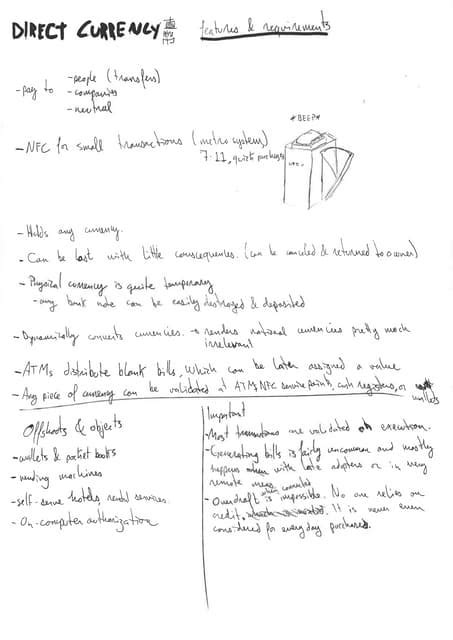 DIRECT CURRENCY
features & requirements
- pay to
- people (transfers)
- companies
- neutral
- NFC for small transactions (metro system)
7:11, quick purchases
*BEEP*
- Holds any currency.
- Can be lost with little consequences. (can be canceled & returned to owner)
- Physical currency is quite temporary
- any bank note can be easily destroyed & deposited
- Dynamically converts currencies. → renders national currencies pretty much
irrelevant
- ATMs distribute blank bills, which can be later assigned a value
- Any piece of currency can be validated at ATMs, NFC service points, cash registers, or
wallets
Offshoots & objects
- wallets & pocket books
- vending machines
- self-serve hotels, rental services.
- On-computer authorization
Important
- Most transactions are validated on execution.
- Generating bills is fairly uncommon and mostly
happens when with late adopters or in very
remote areas.
- Overdraft is impossible. No one relies on
when connected
credit. It is never even
considered for everyday purchases.